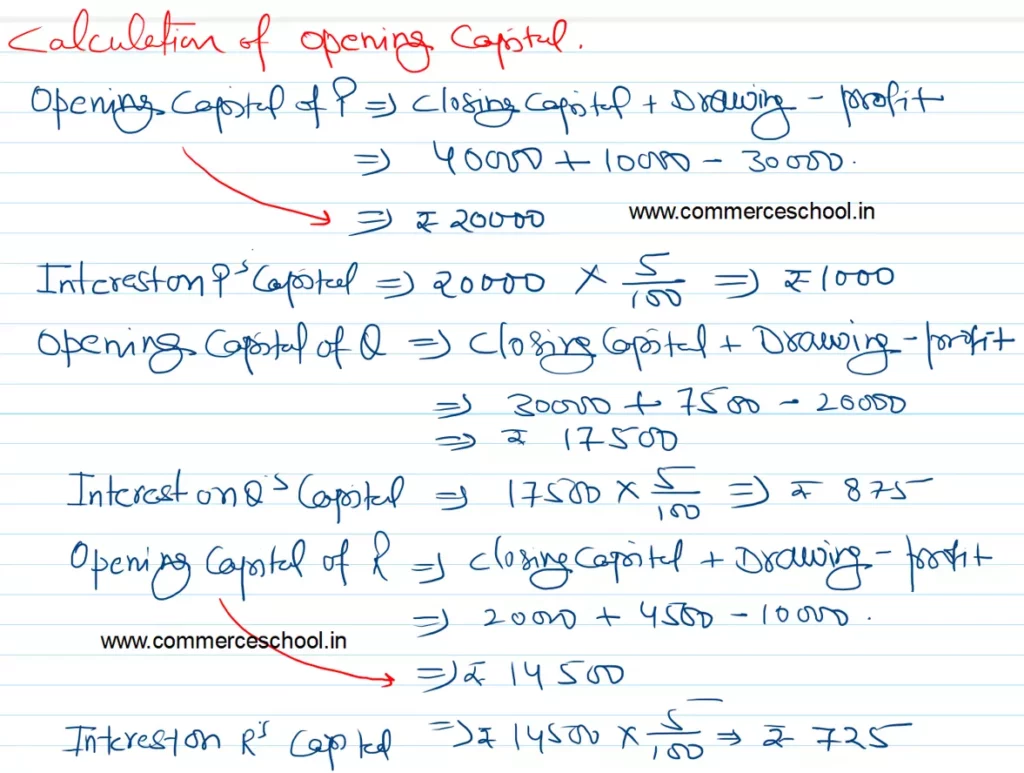 Calculation of opening Capital.
Opening Capital of P ⇒ Closing Capital + Drawing - profit
⇒ 40000 + 10000 - 30000.
⇒ ₹ 20000
www.commerceschool.in
Interest on P's Capital ⇒ 20000 × 5/100 ⇒ ₹ 1000
Opening Capital of Q ⇒ Closing Capital + Drawing - profit
⇒ 30000 + 7500 - 20000
⇒ ₹ 17500
Interest on Q's Capital ⇒ 17500 × 5/100 ⇒ ₹ 875
Opening Capital of R ⇒ Closing Capital + Drawing - profit
⇒ 20000 + 4500 - 10000.
www.commerceschool.in
⇒ ₹ 14500
Interest on R's Capital ⇒ ₹ 14500 × 5/100 ⇒ ₹ 725